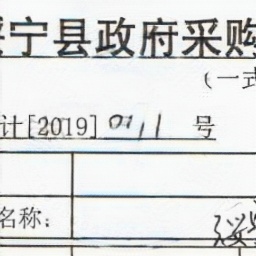 宁县政府采购
(一式
计[2019]0111号
名称: